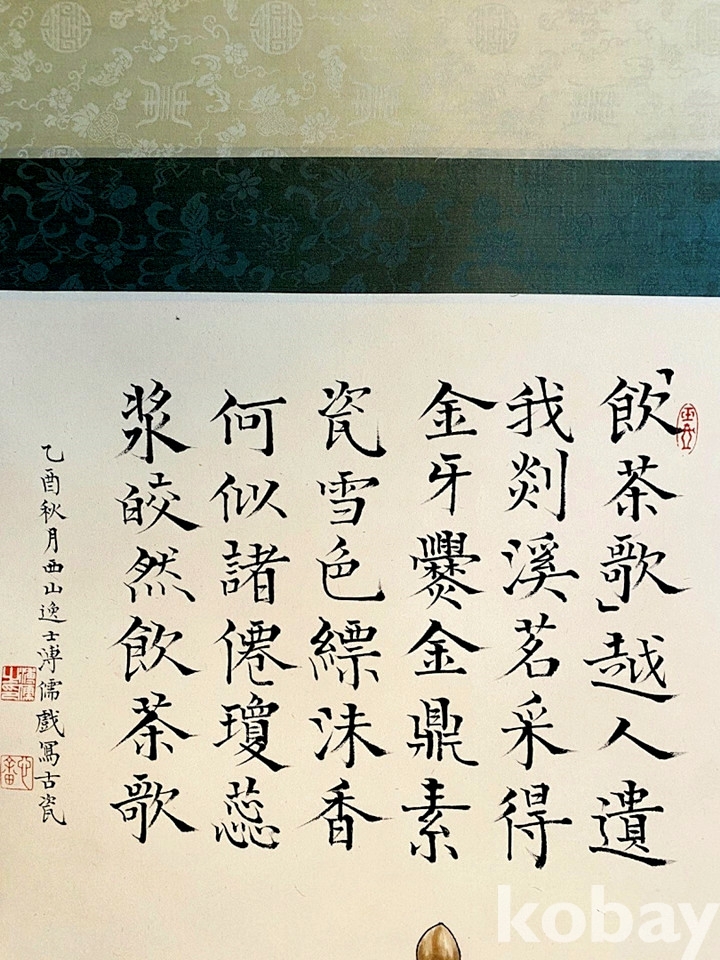 「飲茶歌」越人遺
我剡溪茗采得
金牙爨金鼎素
瓷雪色縹沫香
何似諸僊瓊蕊
漿皎然飲茶歌
乙酉秋月西山逸士溥儒戲寫古瓷
kobay